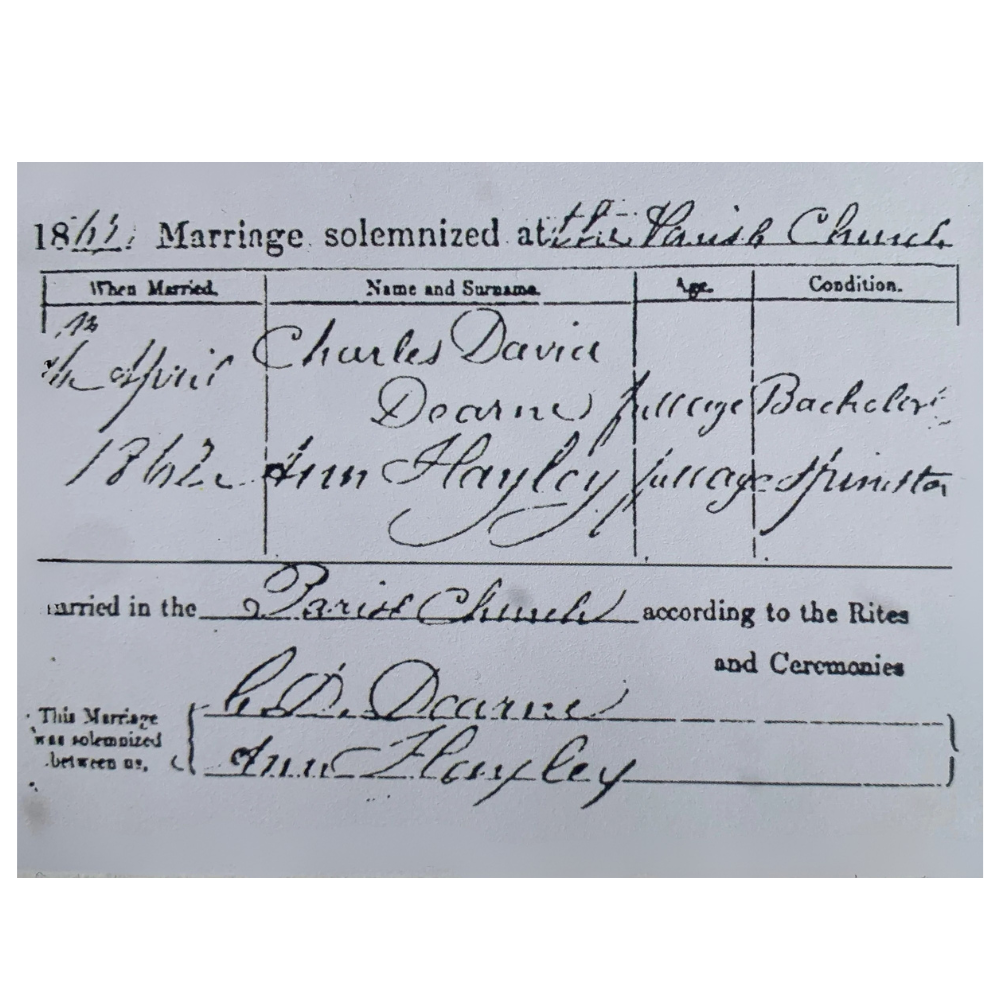 1862. Marriage solemnized at the Parish Church
When Married. Name and Surname. Age. Condition.
April Charles David
Dearne full age Bachelor
1862 Ann Hayley full age Spinster
married in the Parish Church according to the Rites
and Ceremonies
This Marriage was solemnized between us,
C. D. Dearne
Ann Hayley